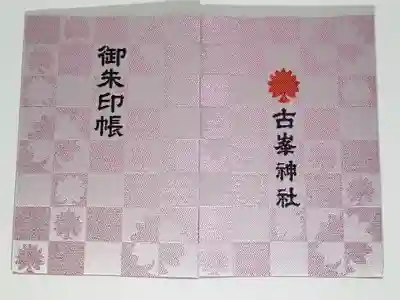 古峯神社
御朱印帳